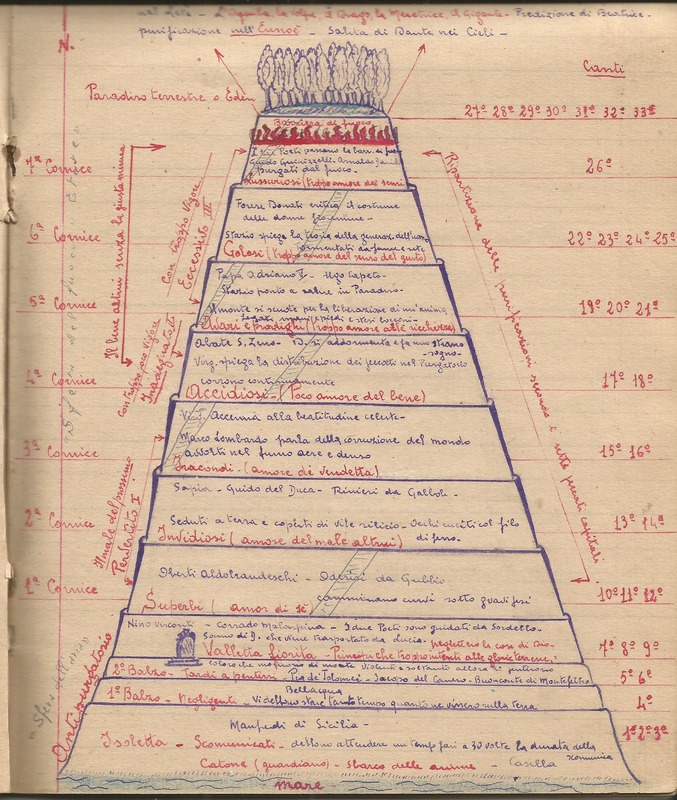 nel Lete - L'Aquila, la Volpe, il Drago, la Meretrice, il Gigante - Predizione di Beatrice -
purificazione nell'Eunoè - Salita di Dante nei Cieli -
N.
Canti
Paradiso terrestre o Eden
27° 28° 29° 30° 31° 32° 33°
Barriera di fuoco
7ª Cornice
I Poeti passano la barr. di fuoco
Guido Guinizzelli Arnaldo Daniello
Purgati dal fuoco.
Lussuriosi (troppo amore dei sensi
26°
6ª Cornice
Forese Donati critica il costume
delle donne fiorentine -
Stazio spiega la teoria della generaz. dell'uomo
tormentati da fame e sete
Golosi (troppo amore del senso del gusto)
22° 23° 24° 25°
5ª Cornice
Papa Adriano V - Ugo Capeto -
Stazio pronto a salire in Paradiso.
Il monte si scuote per la liberazione di un'anima
legati mani e piedi e stesi bocconi -
Avari e prodighi (troppo amore alle ricchezze)
19° 20° 21°
4ª Cornice
Abate S. Zeno - D. si addormenta e fa uno strano
sogno -
Virg. spiega la distribuzione dei peccati nel Purgatorio
corrono continuamente
Accidiosi - (Poco amore del bene)
17° 18°
3ª Cornice
Virg. accenna alla beatitudine celeste -
Marco Lombardo parla della corruzione del mondo
assorti nel fumo acre e denso
Iracondi - (amore di vendetta)
15° 16°
2ª Cornice
Sapia - Guido del Duca - Rinieri da Calboli -
Seduti a terra e coperti di vile cilicio - Occhi cuciti col filo
di ferro.
Invidiosi (amore del male altrui)
13° 14°
1ª Cornice
Oberti Aldobrandeschi - Oderisi da Gubbio
camminano curvi sotto gravi pesi
Superbi (amor di sé)
10° 11° 12°
Nino Visconti - Corrado Malaspina - I due Poeti sono guidati da Sordello -
Sonno di D. che viene trasportato da Lucia -
neglettero le cose di Dio -
Valletta fiorita - Principi che troppo intenti alle glorie terrene,
7° 8° 9°
coloro che morirono di morte violenta e soltanto allora si pentirono
2° Balzo - Tardi a pentirsi - Pia de' Tolomei - Jacopo del Cassero - Buonconte di Montefeltro
5° 6°
Bellacqua
1° Balzo - Negligenti - Vi debbono stare tanto tempo quanto ne vissero sulla terra
4°
Manfredi di Sicilia -
1° 2° 3°
Isoletta - Scomunicati - debbono attendere un tempo pari a 30 volte la durata della
scomunica
Catone (guardiano) - Sbarco delle anime - Casella
mare
Il bene altrui senza la giusta misura
Con troppo vigore
Eccessivo III
Con troppo poco vigore
Inadeguato II
Il male del prossimo
Pervertito I
Antipurgatorio
Ripartizione delle purificazioni secondo i sette peccati capitali